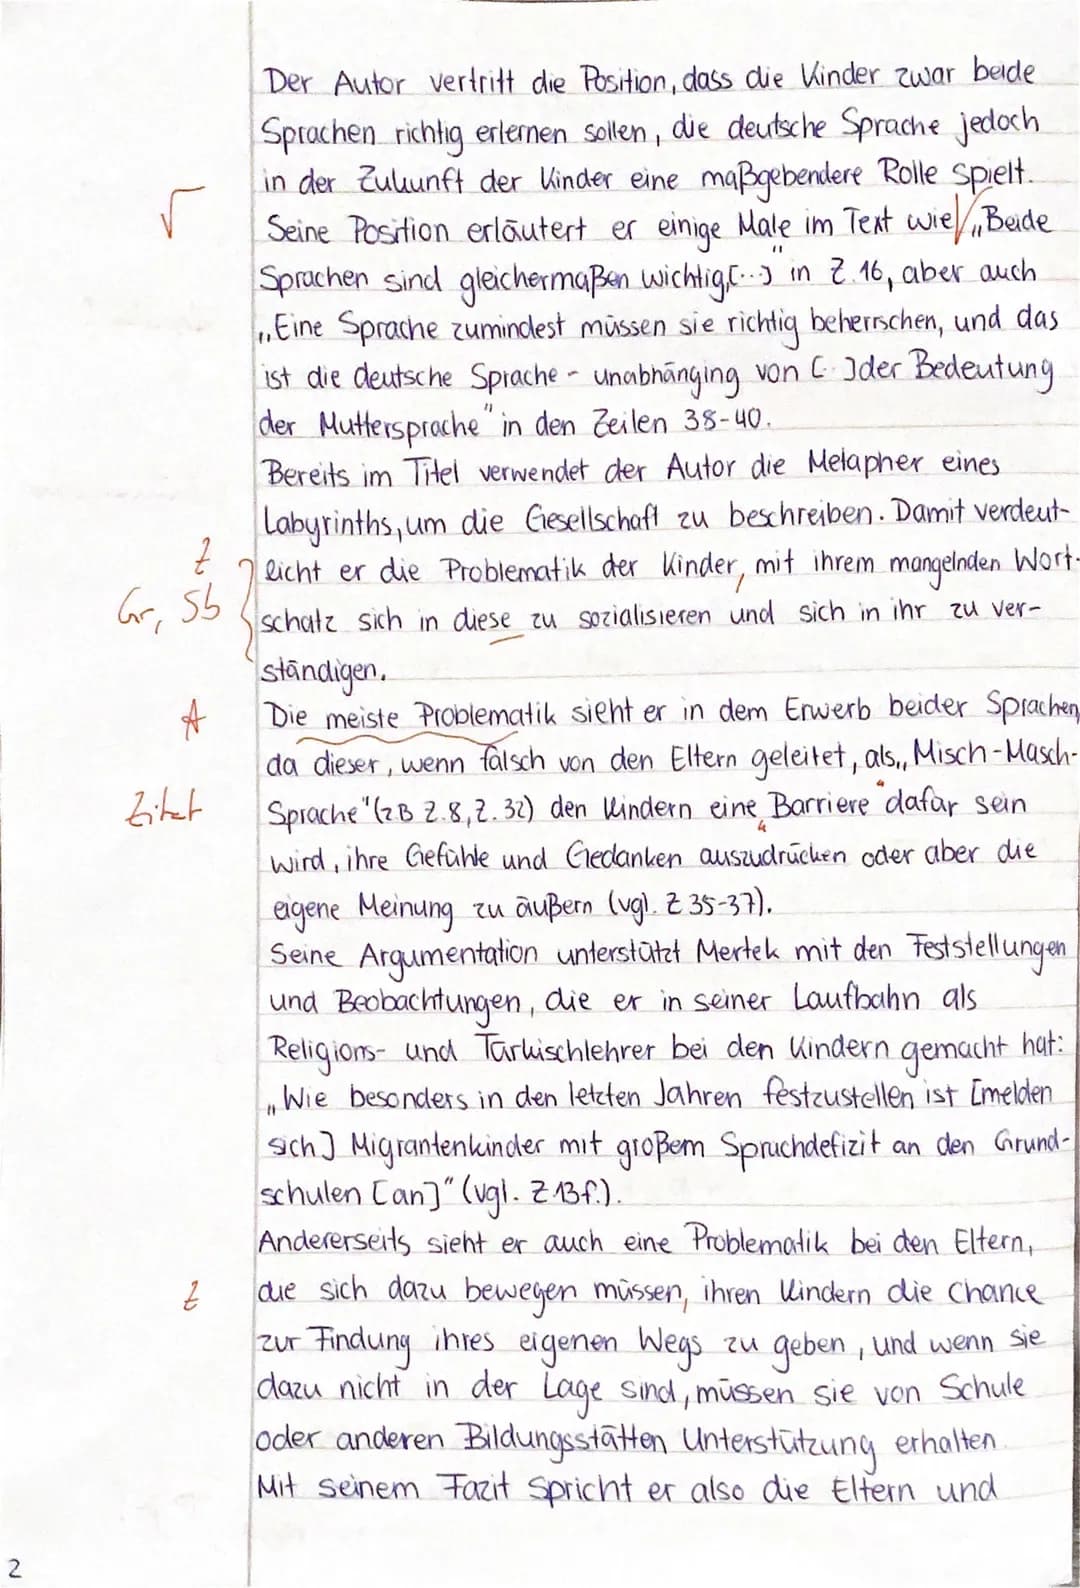 Der Autor vertritt die Position, dass die Kinder zwar beide
Sprachen richtig erlernen sollen, die deutsche Sprache jedoch
in der Zukunft der Kinder eine maßgebendere Rolle spielt.
√
Seine Position erläutert er einige Male im Text wie „Beide
Sprachen sind gleichermaßen wichtig,[...]" in Z. 16, aber auch
„Eine Sprache zumindest müssen sie richtig beherrschen, und das
ist die deutsche Sprache - unabhänging von [..]der Bedeutung
der Muttersprache" in den Zeilen 38-40.
Bereits im Titel verwendet der Autor die Metapher eines
Labyrinths, um die Gesellschaft zu beschreiben. Damit verdeut-
Z
licht er die Problematik der Kinder, mit ihrem mangelnden Wort-
Gr, Sb
schatz sich in diese zu sozialisieren und sich in ihr zu ver-
ständigen.
A
Die meiste Problematik sieht er in dem Erwerb beider Sprachen,
da dieser, wenn falsch von den Eltern geleitet, als „Misch-Masch-
Zitat
Sprache" (zB Z.8, Z. 32) den Kindern eine Barriere dafür sein
wird, ihre Gefühle und Gedanken auszudrücken oder aber die
eigene Meinung zu äußern (vgl. Z 35-37).
Seine Argumentation unterstützt Mertek mit den Feststellungen
und Beobachtungen, die er in seiner Laufbahn als
Religions- und Türkischlehrer bei den Kindern gemacht hat:
„Wie besonders in den letzten Jahren festzustellen ist [melden
sich] Migrantenkinder mit großem Sprachdefizit an den Grund-
schulen [an]" (vgl. Z.13f.).
Andererseits sieht er auch eine Problematik bei den Eltern,
Z
die sich dazu bewegen müssen, ihren Kindern die Chance
zur Findung ihres eigenen Wegs zu geben, und wenn sie
dazu nicht in der Lage sind, müssen sie von Schule
oder anderen Bildungsstätten Unterstützung erhalten.
Mit seinem Fazit spricht er also die Eltern und
2